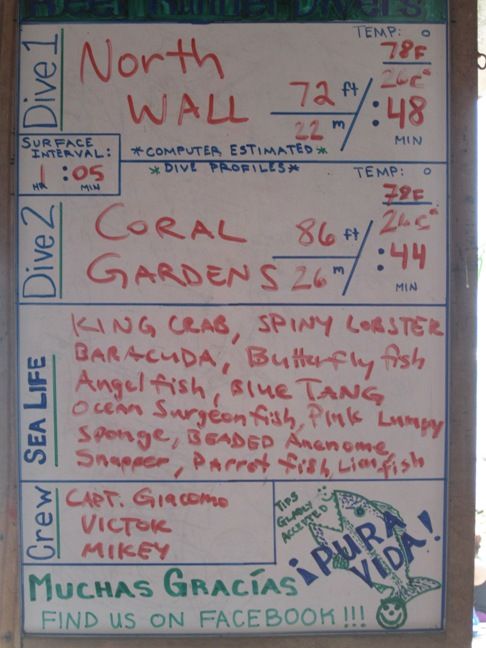 Divers
Dive 1
North
WALL
72 ft
22 m
TEMP: o
78F
26c°
:48
MIN
SURFACE
INTERVAL:
1 :05
HR MIN
*COMPUTER ESTIMATED*
*DIVE PROFILES*
Dive 2
CORAL
GARDENS
86 ft
26 m
TEMP: o
78F
26c°
:44
MIN
SEA LIFE
KING CRAB, SPINY LOBSTER
BARACUDA, Butterfly fish
Angel fish, BLUE TANG
Ocean Surgeonfish, Pink Lumpy
Sponge, BEADED Anenome,
Snapper, Parrot fish, Lionfish
Crew
CAPT. Giacomo
VICTOR
MIKEY
TIPS
GLADLY
ACCEPTED
¡PURA
VIDA!
MUCHAS GRACÍAS
FIND US ON FACEBOOK!!!